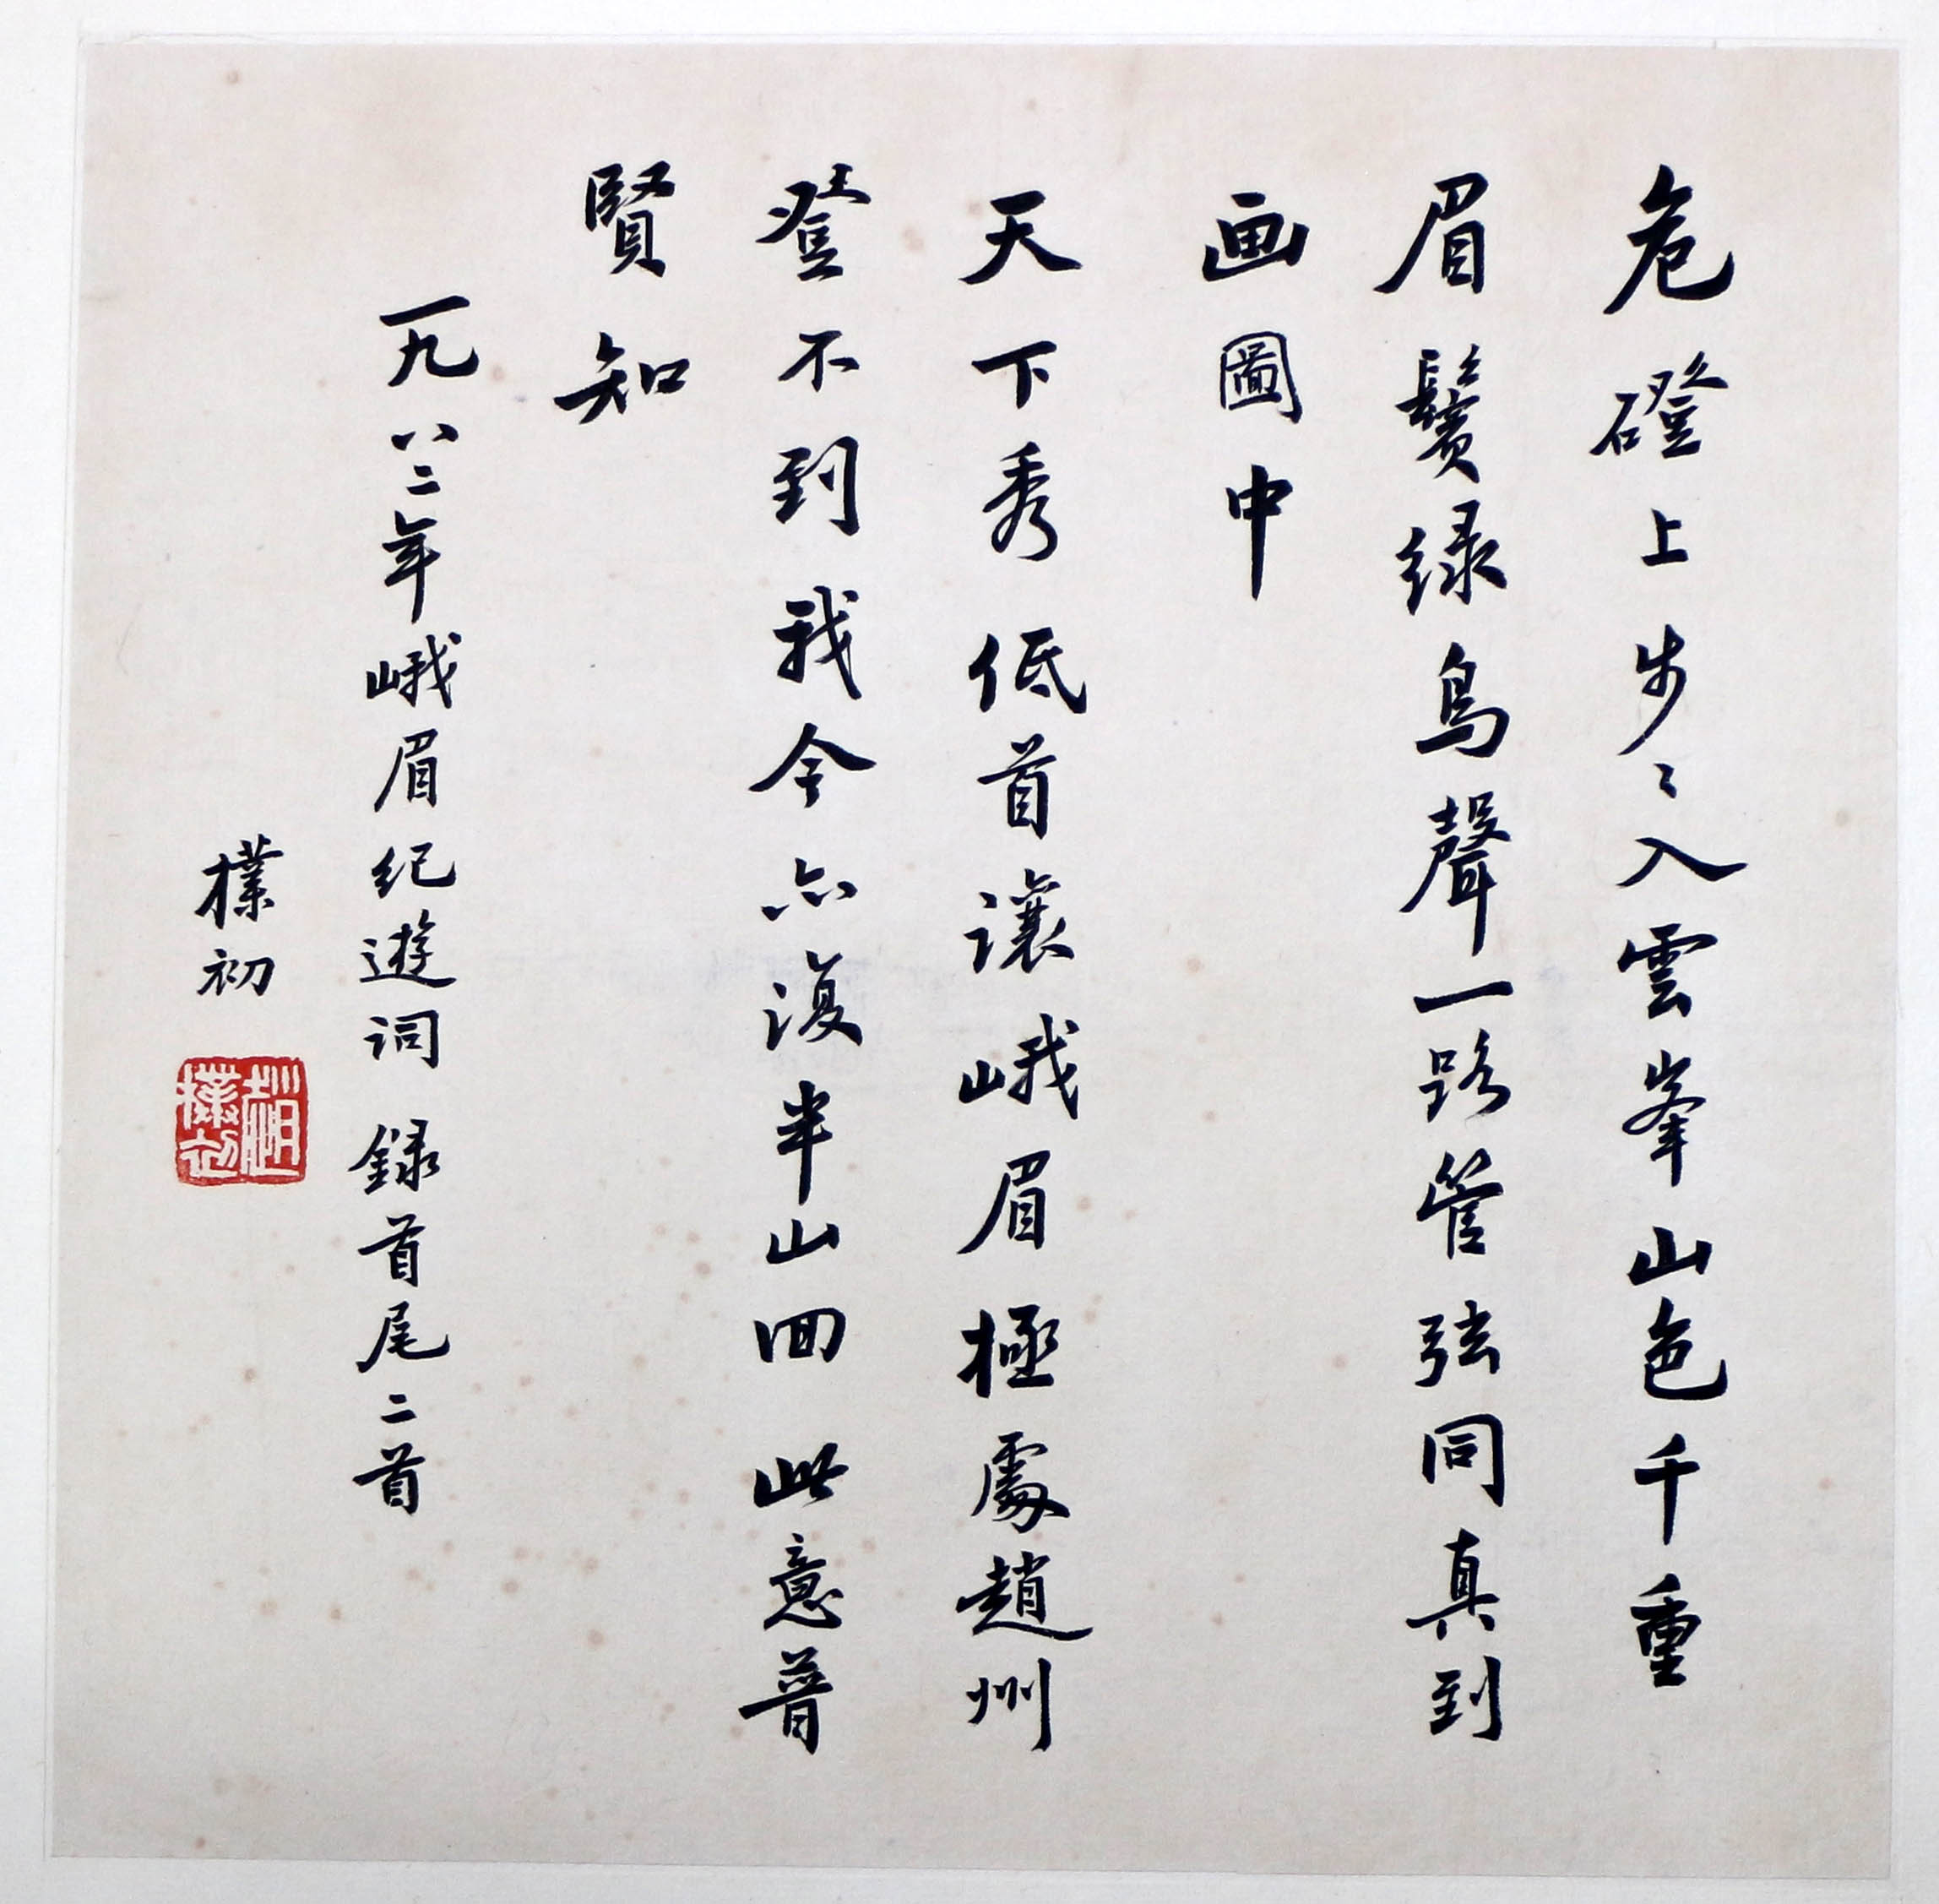 危磴上步々入雲峯山色千重
眉鬢绿鳥聲一路管弦同真到
画圖中
天下秀低首讓峨眉極處趙州
登不到我今亦復半山回此意普
賢知
一九八二年峨眉纪遊词 録首尾二首
樸初
趙樸初